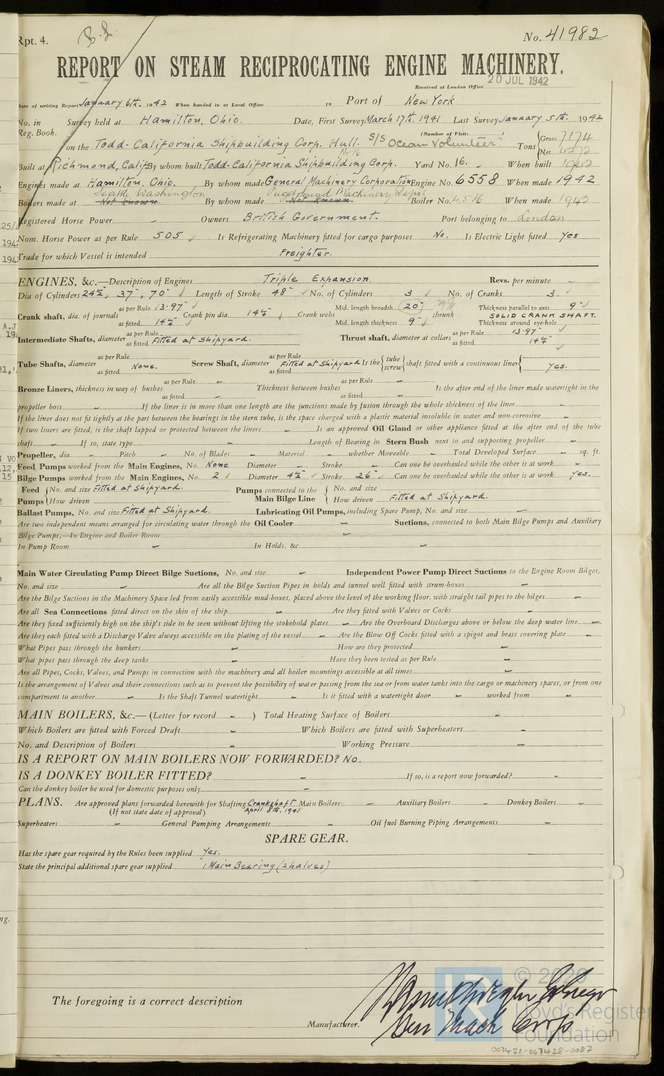 Rpt. 4.
No. 41982
REPORT ON STEAM RECIPROCATING ENGINE MACHINERY.
Received at London Office 20 JUL 1942
Date of writing Report January 6th. 1942 When handed in at Local Office 19 Port of New York
No. in Survey held at Hamilton, Ohio. Date, First Survey March 17th. 1941 Last Survey January 5th. 1942
Reg. Book. (Number of Visits)
on the Todd-California Shipbuilding Corp. Hull. No. 16 S/S "Ocean Volunteer" Tons Gross 7174 Net
Built at Richmond, Calif. By whom built Todd-California Shipbuilding Corp. Yard No. 16. When built 1942
Engines made at Hamilton, Ohio. By whom made General Machinery Corporation Engine No. 6558 When made 1942
Boilers made at Not known. Washington By whom made Not known. Puget Sound Machinery Depot Boiler No. When made 1942
Registered Horse Power - Owners British Government. Port belonging to London
Nom. Horse Power as per Rule 505 Is Refrigerating Machinery fitted for cargo purposes No. Is Electric Light fitted Yes
Trade for which Vessel is intended Freighter.
ENGINES, &c.—Description of Engines Triple Expansion. Revs. per minute -
Dia of Cylinders 24½, 37", 70" Length of Stroke 48" No. of Cylinders 3 No. of Cranks 3
Crank shaft, dia. of journals as per Rule 13.97" as fitted 14½" Crank pin dia. 14½" Crank webs Mid. length breadth 20" Mid. length thickness 9" shrunk Thickness parallel to axis 9" SOLID CRANK SHAFT. Thickness around eye-hole
Intermediate Shafts, diameter as per Rule as fitted Fitted at Shipyard. Thrust shaft, diameter at collars as per Rule 13.97 as fitted 14½
Tube Shafts, diameter as per Rule as fitted None. Screw Shaft, diameter as per Rule as fitted Fitted at Shipyard Is the {tube screw} shaft fitted with a continuous liner Yes.
Bronze Liners, thickness in way of bushes as per Rule - as fitted - Thickness between bushes as per Rule - as fitted - Is the after end of the liner made watertight in the
propeller boss - If the liner is in more than one length are the junctions made by fusion through the whole thickness of the liner -
If the liner does not fit tightly at the part between the bearings in the stern tube, is the space charged with a plastic material insoluble in water and non-corrosive -
If two liners are fitted, is the shaft lapped or protected between the liners - Is an approved Oil Gland or other appliance fitted at the after end of the tube
shaft - If so, state type - Length of Bearing in Stern Bush next to and supporting propeller -
Propeller, dia. - Pitch - No. of Blades - Material - whether Moveable - Total Developed Surface - sq. ft.
Feed Pumps worked from the Main Engines, No. None Diameter - Stroke - Can one be overhauled while the other is at work -
Bilge Pumps worked from the Main Engines, No. 2 Diameter 4½ Stroke 26" Can one be overhauled while the other is at work Yes.
Feed Pumps {No. and size Fitted at Shipyard. How driven - Pumps connected to the Main Bilge Line {No. and size - How driven Fitted at Shipyard.
Ballast Pumps, No. and size Fitted at Shipyard. Lubricating Oil Pumps, including Spare Pump, No. and size -
Are two independent means arranged for circulating water through the Oil Cooler - Suctions, connected to both Main Bilge Pumps and Auxiliary
Bilge Pumps,—In Engine and Boiler Room
In Pump Room - In Holds, &c. -
Main Water Circulating Pump Direct Bilge Suctions, No. and size - Independent Power Pump Direct Suctions to the Engine Room Bilges,
No. and size - Are all the Bilge Suction Pipes in holds and tunnel well fitted with strum-boxes -
Are the Bilge Suctions in the Machinery Space led from easily accessible mud-boxes, placed above the level of the working floor, with straight tail pipes to the bilges -
Are all Sea Connections fitted direct on the skin of the ship - Are they fitted with Valves or Cocks -
Are they fixed sufficiently high on the ship's side to be seen without lifting the stokehold plates - Are the Overboard Discharges above or below the deep water line -
Are they each fitted with a Discharge Valve always accessible on the plating of the vessel - Are the Blow Off Cocks fitted with a spigot and brass covering plate -
What Pipes pass through the bunkers - How are they protected -
What pipes pass through the deep tanks - Have they been tested as per Rule -
Are all Pipes, Cocks, Valves, and Pumps in connection with the machinery and all boiler mountings accessible at all times -
Is the arrangement of Valves and their connections such as to prevent the possibility of water passing from the sea or from water tanks into the cargo or machinery spaces, or from one
compartment to another - Is the Shaft Tunnel watertight - Is it fitted with a watertight door - worked from -
MAIN BOILERS, &c.— (Letter for record - ) Total Heating Surface of Boilers -
Which Boilers are fitted with Forced Draft - Which Boilers are fitted with Superheaters -
No. and Description of Boilers - Working Pressure -
IS A REPORT ON MAIN BOILERS NOW FORWARDED? No.
IS A DONKEY BOILER FITTED? - If so, is a report now forwarded? -
Can the donkey boiler be used for domestic purposes only -
PLANS. Are approved plans forwarded herewith for Shafting Crankshaft April 8th. 1941 Main Boilers - Auxiliary Boilers - Donkey Boilers -
(If not state date of approval)
Superheaters - General Pumping Arrangements - Oil fuel Burning Piping Arrangements -
SPARE GEAR.
Has the spare gear required by the Rules been supplied Yes.
State the principal additional spare gear supplied 1 Main Bearing (2 halves)
The foregoing is a correct description
Manufacturer.
Gen Mach Corp
© 20
Lloyd's Register
Foundation
003421-003428-0087